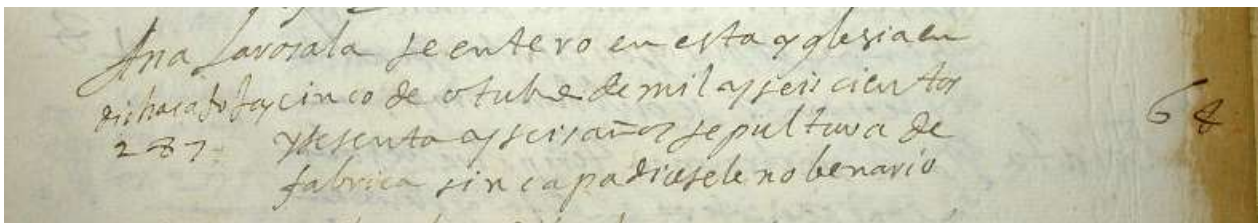 Ana Larosala se entero en esta yglesia en
cinco de otubre de mil y seiscientos
287 y sesenta y seis años sepultura de
fabrica sin capa diosele nobenario
68